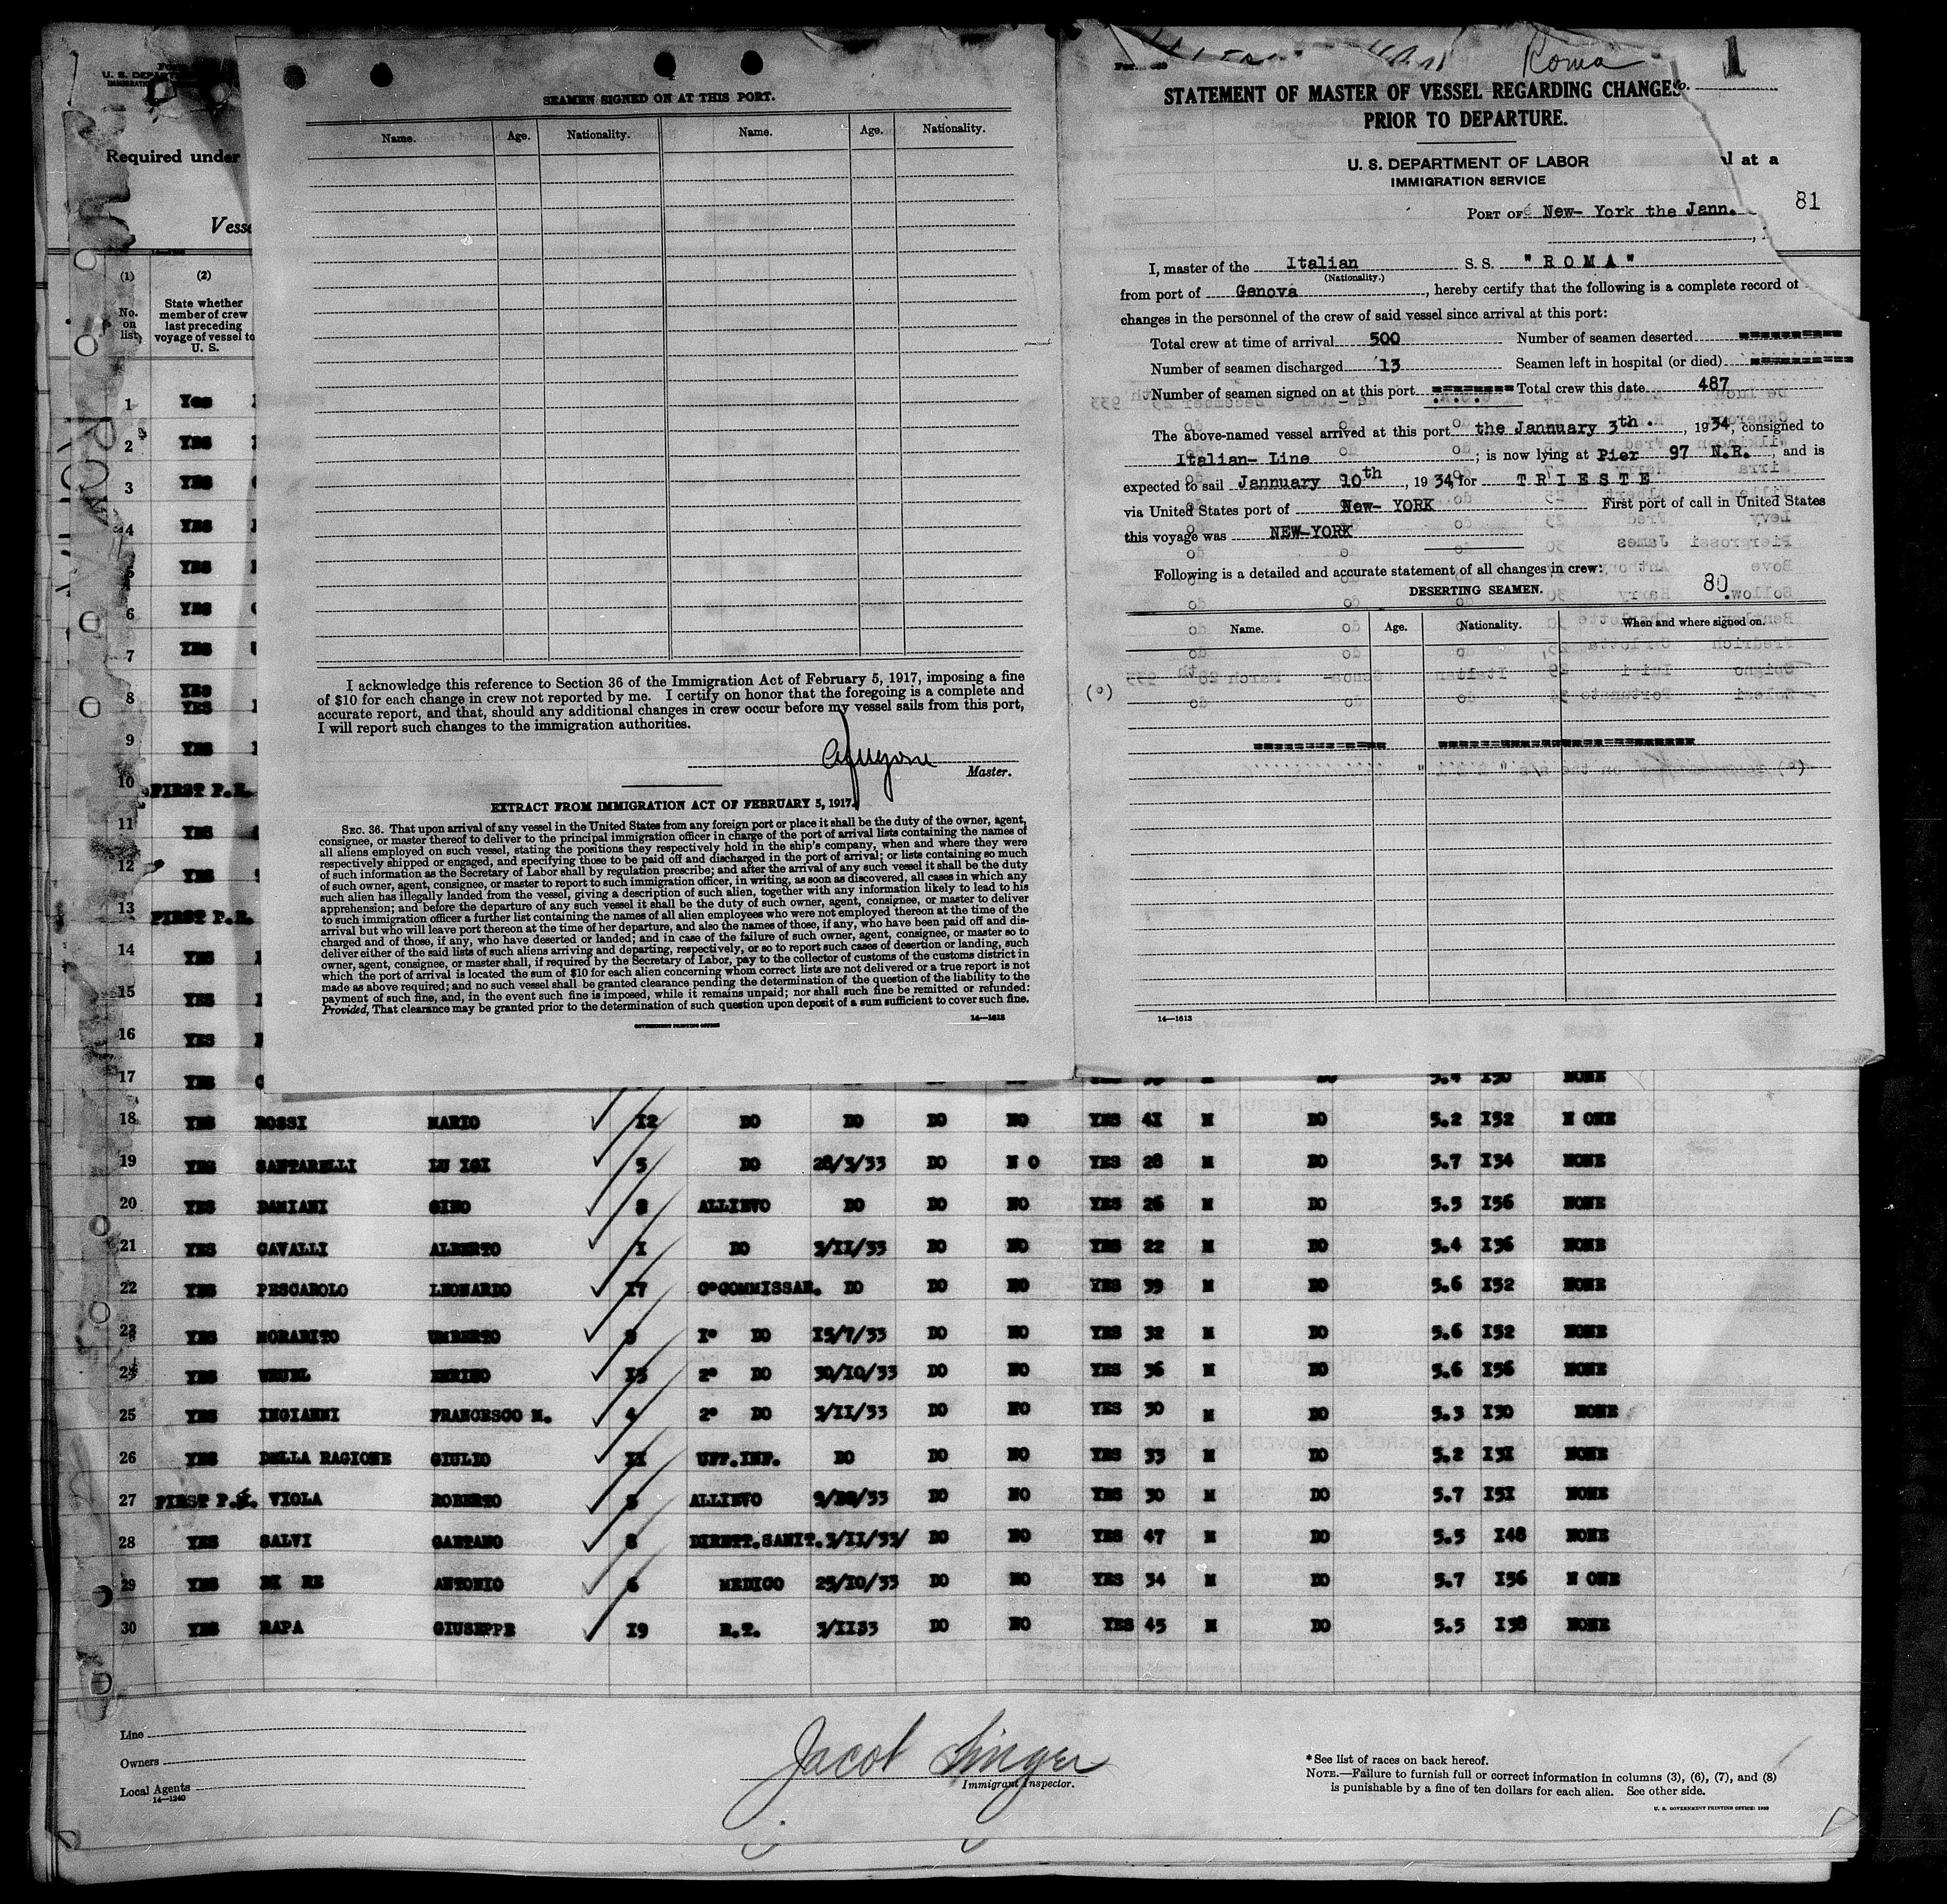 SEAMEN SIGNED ON AT THIS PORT.
Name. Age. Nationality. Name. Age. Nationality.
I acknowledge this reference to Section 36 of the Immigration Act of February 5, 1917, imposing a fine
of $10 for each change in crew not reported by me. I certify on honor that the foregoing is a complete and
accurate report, and that, should any additional changes in crew occur before my vessel sails from this port,
I will report such changes to the immigration authorities.
Master.
EXTRACT FROM IMMIGRATION ACT OF FEBRUARY 5, 1917.
SEC. 36. That upon arrival of any vessel in the United States from any foreign port or place it shall be the duty of the owner, agent,
consignee, or master thereof to deliver to the principal immigration officer in charge of the port of arrival lists containing the names of
all aliens employed on such vessel, stating the positions they respectively hold in the ship's company, when and where they were
respectively shipped or engaged, and specifying those to be paid off and discharged in the port of arrival; or lists containing so much
of such information as the Secretary of Labor shall by regulation prescribe; and after the arrival of any such vessel it shall be the duty
of such owner, agent, consignee, or master to report to such immigration officer, in writing, as soon as discovered, all cases in which any
such alien has illegally landed from the vessel, giving a description of such alien, together with any information likely to lead to his
apprehension; and before the departure of any such vessel it shall be the duty of such owner, agent, consignee, or master to deliver
to such immigration officer a further list containing the names of all alien employees who were not employed thereon at the time of the
arrival but who will leave port thereon at the time of her departure, and also the names of those, if any, who have been paid off and dis-
charged and of those, if any, who have deserted or landed; and in case of the failure of such owner, agent, consignee, or master so to
deliver either of the said lists of such aliens arriving and departing, respectively, or so to report such cases of desertion or landing, such
owner, agent, consignee, or master shall, if required by the Secretary of Labor, pay to the collector of customs of the customs district in
which the port of arrival is located the sum of $10 for each alien concerning whom correct lists are not delivered or a true report is not
made as above required; and no such vessel shall be granted clearance pending the determination of the question of the liability to the
payment of such fine, and, in the event such fine is imposed, while it remains unpaid; nor shall such fine be remitted or refunded:
Provided, That clearance may be granted prior to the determination of such question upon deposit of a sum sufficient to cover such fine.
GOVERNMENT PRINTING OFFICE 14—1613
Roma 1
STATEMENT OF MASTER OF VESSEL REGARDING CHANGES
PRIOR TO DEPARTURE.
U. S. DEPARTMENT OF LABOR
IMMIGRATION SERVICE
al at a
81
PORT OF New- York the Jann.
I, master of the Italian S. S. "ROMA"
(Nationality.)
from port of Genova, hereby certify that the following is a complete record of
changes in the personnel of the crew of said vessel since arrival at this port:
Total crew at time of arrival 500 Number of seamen deserted
Number of seamen discharged 13 Seamen left in hospital (or died)
Number of seamen signed on at this port Total crew this date 487
The above-named vessel arrived at this port the Jannuary 3th. , 1934, consigned to
Italian- Line ; is now lying at Pier 97 N.R. , and is
expected to sail Jannuary 10th , 1934, for TRIESTE
via United States port of New- YORK First port of call in United States
this voyage was NEW-YORK
Following is a detailed and accurate statement of all changes in crew:
80
DESERTING SEAMEN.
Name. Age. Nationality. When and where signed on.
14—1613
U. S. DEPA
Required under
Vesse
(1) (2)
No. on list State whether member of crew last preceding voyage of vessel to U. S.
1 Yes
2 YES
3 YES
4 YES
5 YES
6 YES
7 YES
8 YES
YES
9 YES
10 FIRST P.E.
11 YES
12 YES
13 FIRST P.E.
14 YES
15 YES
16 YES
17 YES NONE
18 YES ROSSI MARIO 12 DO DO DO NO YES 41 M DO 5.2 I52 N ONE
19 YES SANTARELLI LU IGI 5 DO 28/3/33 DO N O YES 28 M DO 5.7 I54 NONE
20 YES DAMIANI GINO 8 ALLIEVO DO DO NO YES 26 M DO 5.5 I56 NONE
21 YES CAVALLI ALBERTO I DO 3/II/33 DO NO YES 22 M DO 5.4 I36 NONE
22 YES PESCAROLO LEONARDO I7 C°COMMISSAR. DO DO NO YES 39 M DO 5.6 I52 NONE
23 YES MORABITO UMBERTO 9 I° DO I5/7/33 DO NO YES 32 M DO 5.6 I52 NONE
24 YES I5 2° DO 30/IO/33 DO NO YES 36 M DO 5.6 I56 NONE
25 YES INGIANNI FRANCESCO M. 4 2° DO 3/II/33 DO NO YES 30 M DO 5.3 I30 NONE
26 YES DELLA RAGIONE GIULIO II UFF.INF. DO DO NO YES 33 M DO 5.2 I3I NONE
27 FIRST P.E. VIOLA ROBERTO ALLIEVO DO NO YES 30 M DO 5.7 I5I NONE
28 YES SALVI GAETANO 8 DIRETT.SANIT. 3/II/33/ DO NO YES 47 M DO 5.5 I48 NONE
29 YES DI RE ANTONIO 6 MEDICO 25/IO/33 DO NO YES 34 M DO 5.7 I56 N ONE
30 YES RAPA GIUSEPPE I9 R.T. 3/II33 DO NO YES 45 M DO 5.5 I38 NONE
Line
Owners
Local Agents
14—1240
Jacob Singer
Immigrant Inspector.
*See list of races on back hereof.
NOTE.—Failure to furnish full or correct information in columns (3), (6), (7), and (8)
is punishable by a fine of ten dollars for each alien. See other side.
U. S. GOVERNMENT PRINTING OFFICE: 1933